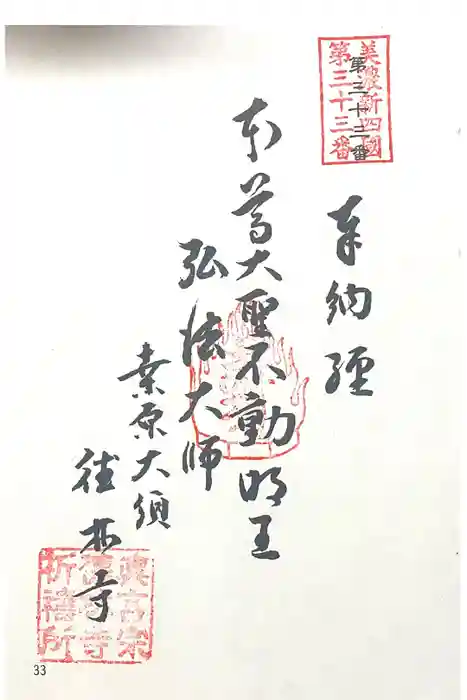 美濃新四國
第三十三番
第三十三番
奉納経
本尊大聖不動明王
弘法大師
桒原大須
徳林寺
眞言宗
徳林寺
祈禱所
33